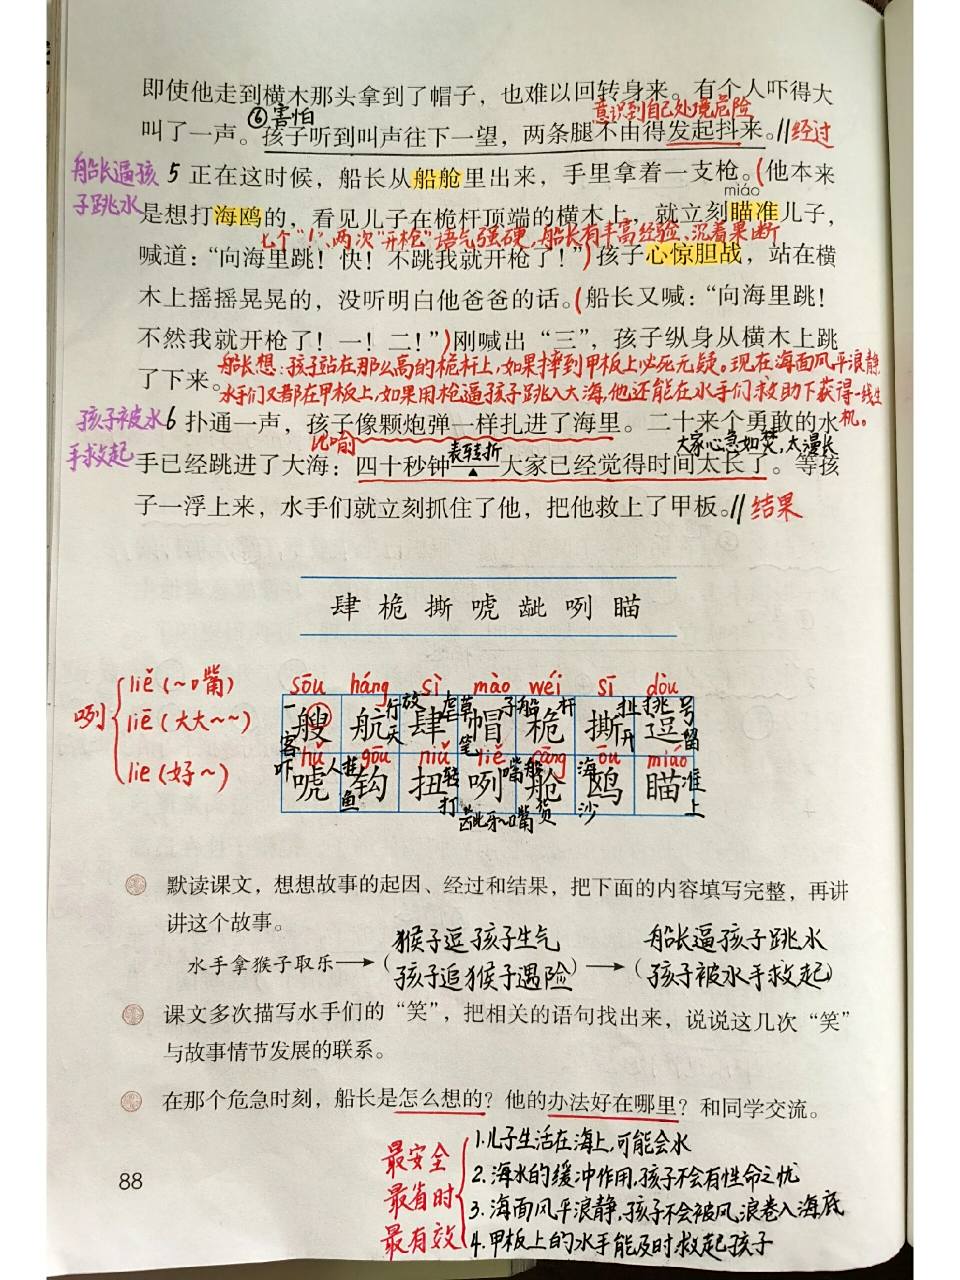 即使他走到横木那头拿到了帽子，也难以回转身来。有个人吓得大
⑥害怕
意识到自己处境危险
叫了一声。孩子听到叫声往下一望，两条腿不由得发起抖来。//经过
船长逼孩
子跳水
5 正在这时候，船长从船舱里出来，手里拿着一支枪。(他本来
miáo
是想打海鸥的，看见儿子在桅杆顶端的横木上，就立刻瞄准儿子，
七个“!”、两次“开枪”语气强硬，船长有丰高经验、沉着果断
喊道：“向海里跳！快！不跳我就开枪了！”)孩子心惊胆战，站在横
木上摇摇晃晃的，没听明白他爸爸的话。(船长又喊：“向海里跳！
不然我就开枪了！一！二！”)刚喊出“三”，孩子纵身从横木上跳
船长想：孩子站在那么高的桅杆上，如果摔到甲板上必死无疑。现在海面风平浪静，
了下来。
水手们又都在甲板上，如果用枪逼孩子跳入大海，他还能在水手们救助下获得一线生
机。
孩子被水
手救起
6 扑通一声，孩子像颗炮弹一样扎进了海里。二十来个勇敢的水
比喻
表转折
大家心急如焚，太漫长
手已经跳进了大海：四十秒钟——大家已经觉得时间太长了。等孩
子一浮上来，水手们就立刻抓住了他，把他救上了甲板。//结果
肆 桅 撕 唬 龇 咧 瞄
咧
liě (～口嘴)
liē (大大～～)
lie (好～)
sōu háng sì mào wéi sī dòu
一艘 航行 放肆虐 草帽子 船桅杆 撕扯 挑逗号
客 天 笔 开 留
hǔ gōu niǔ liě cāng ōu miáo
吓唬人 挂钩 扭转 咧嘴 船舱 海鸥 瞄准
鱼 打 龇牙～嘴 货 沙 上
默读课文，想想故事的起因、经过和结果，把下面的内容填写完整，再讲
讲这个故事。
猴子逗孩子生气
船长逼孩子跳水
水手拿猴子取乐→(孩子追猴子遇险)→(孩子被水手救起)
课文多次描写水手们的“笑”，把相关的语句找出来，说说这几次“笑”
与故事情节发展的联系。
在那个危急时刻，船长是怎么想的？他的办法好在哪里？和同学交流。
最安全
最省时
最有效
1.儿子生活在海上，可能会水
2.海水的缓冲作用，孩子不会有性命之忧
3.海面风平浪静，孩子不会被风浪卷入海底
4.甲板上的水手能及时救起孩子
88